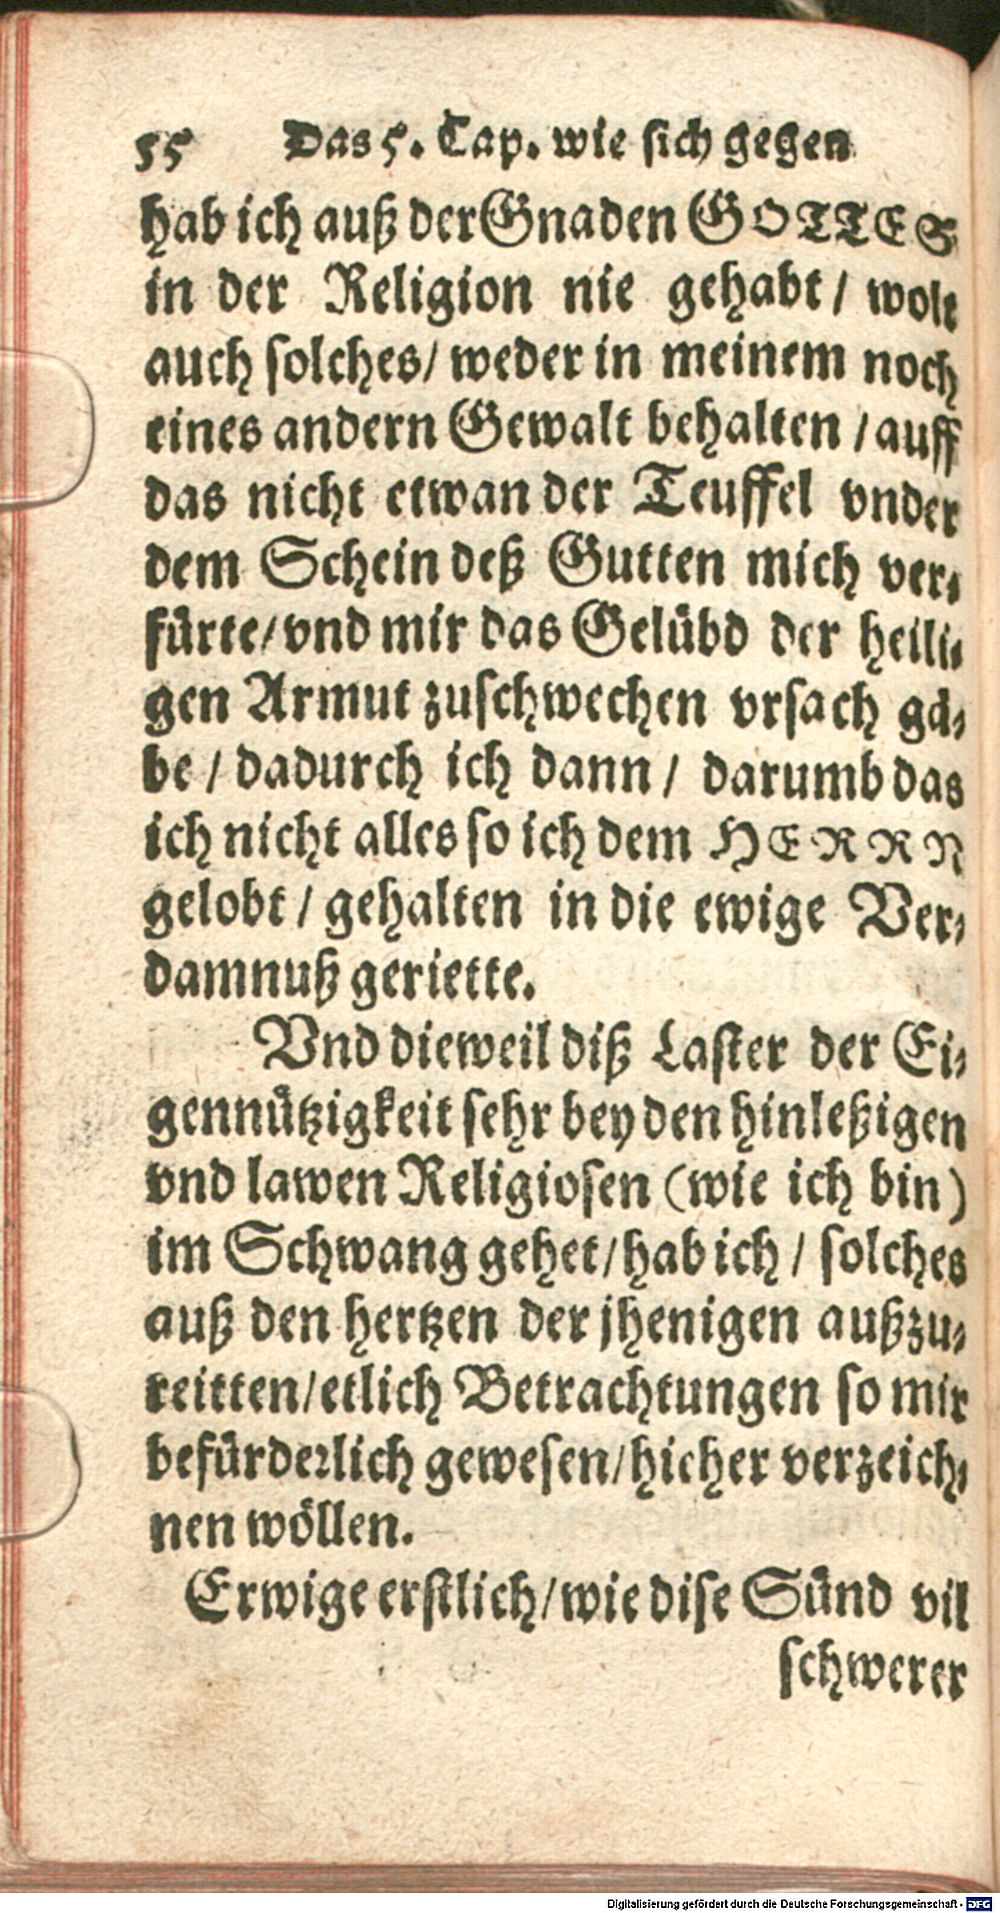 55 Das 5. Cap. wie sich gegen
hab ich auß der Gnaden GOTTES
in der Religion nie gehabt / wolt
auch solches / weder in meinem noch
eines andern Gewalt behalten / auff
das nicht etwan der Teuffel vnder
dem Schein deß Gutten mich ver-
fürte / vnd mir das Gelübd der heili-
gen Armut zuschwechen vrsach gä-
be / dadurch ich dann / darumb das
ich nicht alles so ich dem HERRN
gelobt / gehalten in die ewige Ver-
damnuß geriette.
Vnd dieweil diß Laster der Ei-
gennützigkeit sehr bey den hinleßigen
vnd lawen Religiosen (wie ich bin)
im Schwang gehet / hab ich / solches
auß den hertzen der jhenigen außzu-
reitten / etlich Betrachtungen so mir
befürderlich gewesen / hieher verzeich-
nen wöllen.
Erwige erstlich / wie dise Sünd vil
schwerer
Digitalisierung gefördert durch die Deutsche Forschungsgemeinschaft - DFG